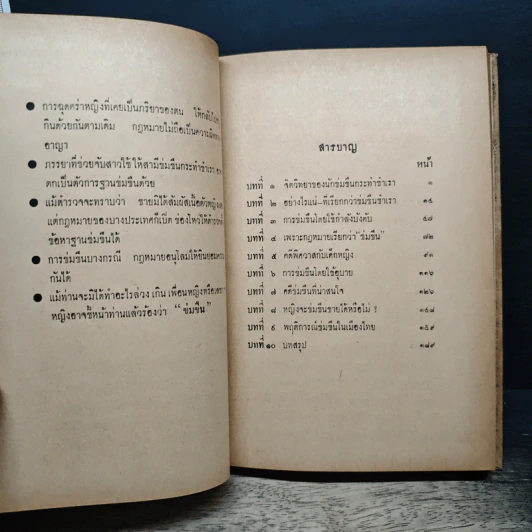 ● การฉุดคร่าหญิงที่เคยเป็นภริยาของตน ให้กลับไป
กินด้วยกันตามเดิม กฎหมายไม่ถือเป็นความผิด
อาญา
● ภรรยาที่ช่วยจับสาวใช้ ให้สามีข่มขืนกระทำชำเรา
ตกเป็นตัวการฐานข่มขืนด้วย
● แม้ตำรวจจะทราบว่า ชายมิได้สัมผัสเนื้อตัวหญิง
แต่กฎหมายของบางประเทศก็เปิดช่องโหว่ให้ตำรวจ
ข้อหาฐานข่มขืนได้
● การข่มขืนบางกรณี กฎหมายอนุโลมให้ยินยอม
กันได้
● แม้ท่านจะมิได้ทำอะไรล่วงเกินเพื่อนหญิง
หญิงอาจชี้หน้าท่านแล้วร้องว่า “ข่มขืน”
สารบาญ
หน้า
บทที่ ๑ จิตวิทยาของนักข่มขืนกระทำชำเรา ๑
บทที่ ๒ อย่างไรแน่-ที่เรียกกว่าข่มขืนชำเรา
บทที่ ๓ การข่มขืนโดยใช้กำลังบังคับ
บทที่ ๔ เพราะกฎหมายเรียกว่า “ข่มขืน” ๗๒
บทที่ ๕ คดีพิศวาสกับเด็กหญิง ๙๑
บทที่ ๖ การข่มขืนโดยใช้อุบาย ๑๑๖
บทที่ ๗ คดีข่มขืนที่น่าสนใจ ๑๒๖
บทที่ ๘ หญิงจะข่มขืนชายได้หรือไม่ ? ๑๔๘
บทที่ ๙ พฤติการณ์ข่มขืนในเมืองไทย ๑๕๙
บทที่ ๑๐ บทสรุป ๑๘๙